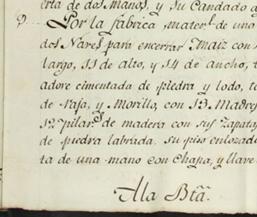 erta de dos Manos, y su Candado a
Por la fabrica mater.l de una
dos Naves para encerrar Maiz con
largo, 11 de alto, y 14 de ancho, t
adove cimentada de piedra y lodo, te
de Vaja, y Morillo, con 13 Madres
12 pilar.s de madera con sus Zapatas
de piedra labrada. su piso enlozado
ta de una mano con Chapa, y llave
A la Bta.